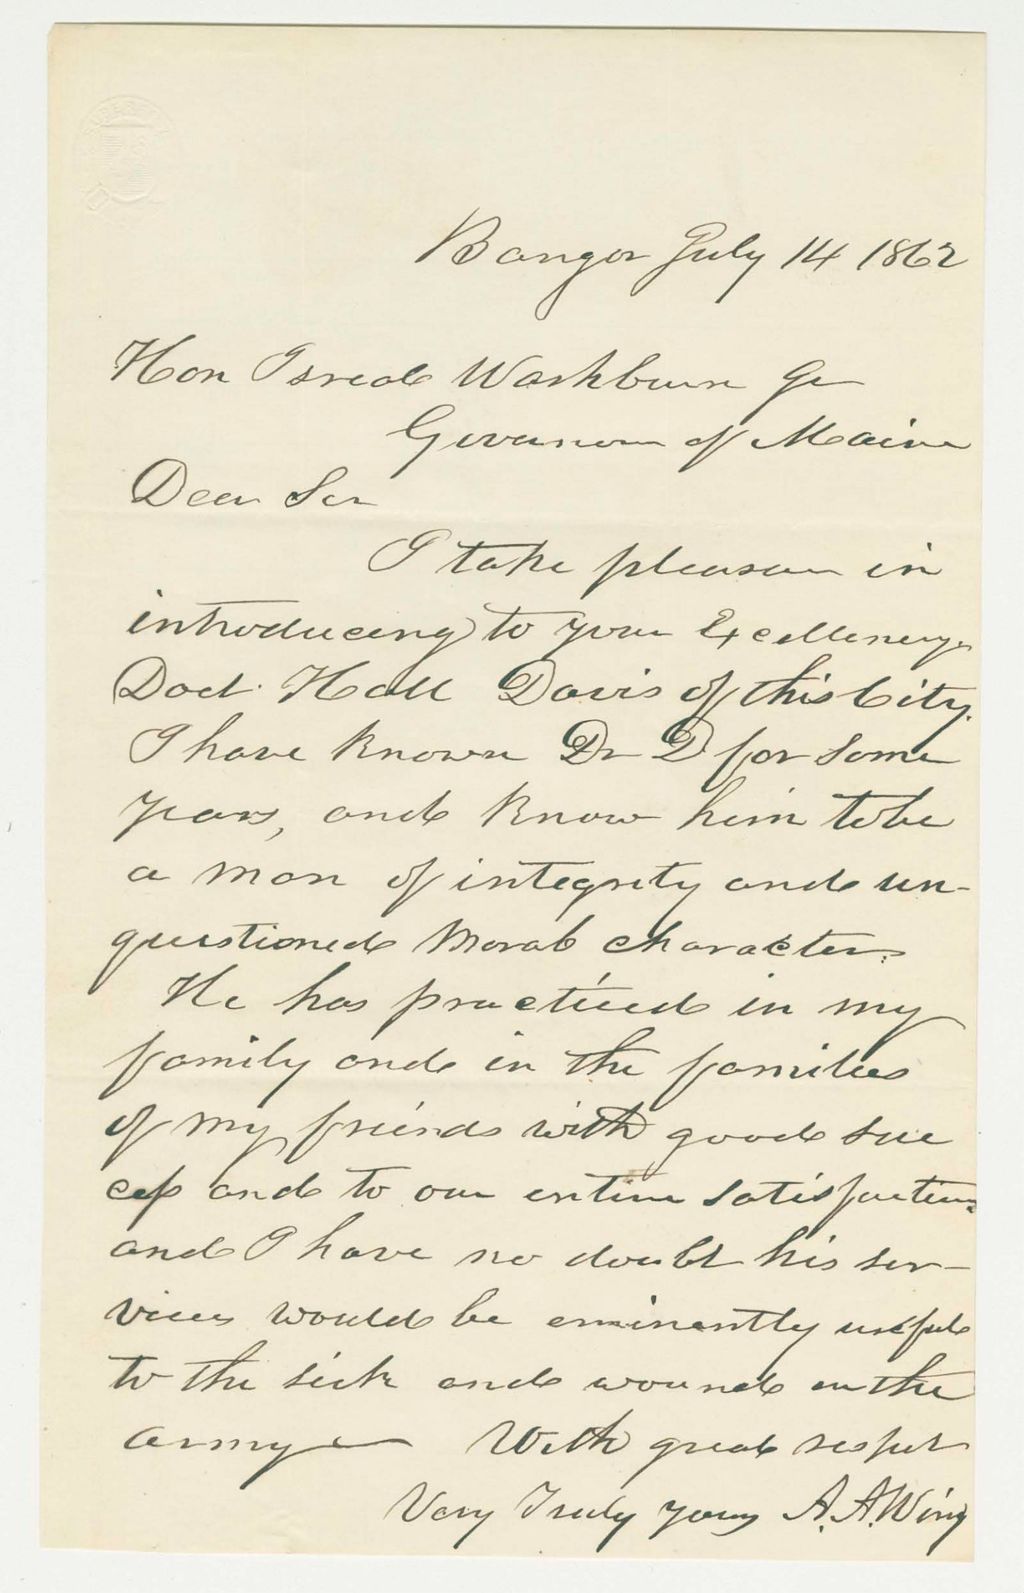 Bangor July 14 1862
Hon Israel Washburn Jr
Governor of Maine
Dear Sir
I take pleasure in
introducing to your Excellency
Doct. Hall Davis of this City.
I have known Dr D for some
years, and know him to be
a man of integrity and un-
questioned moral character.
He has practiced in my
family and in the families
of my friends with good suc
cess and to our entire satisfaction
and I have no doubt his ser-
vices would be eminently useful
to the sick and wound in the
army — With great respect
Very Truly yours A. A. Wing